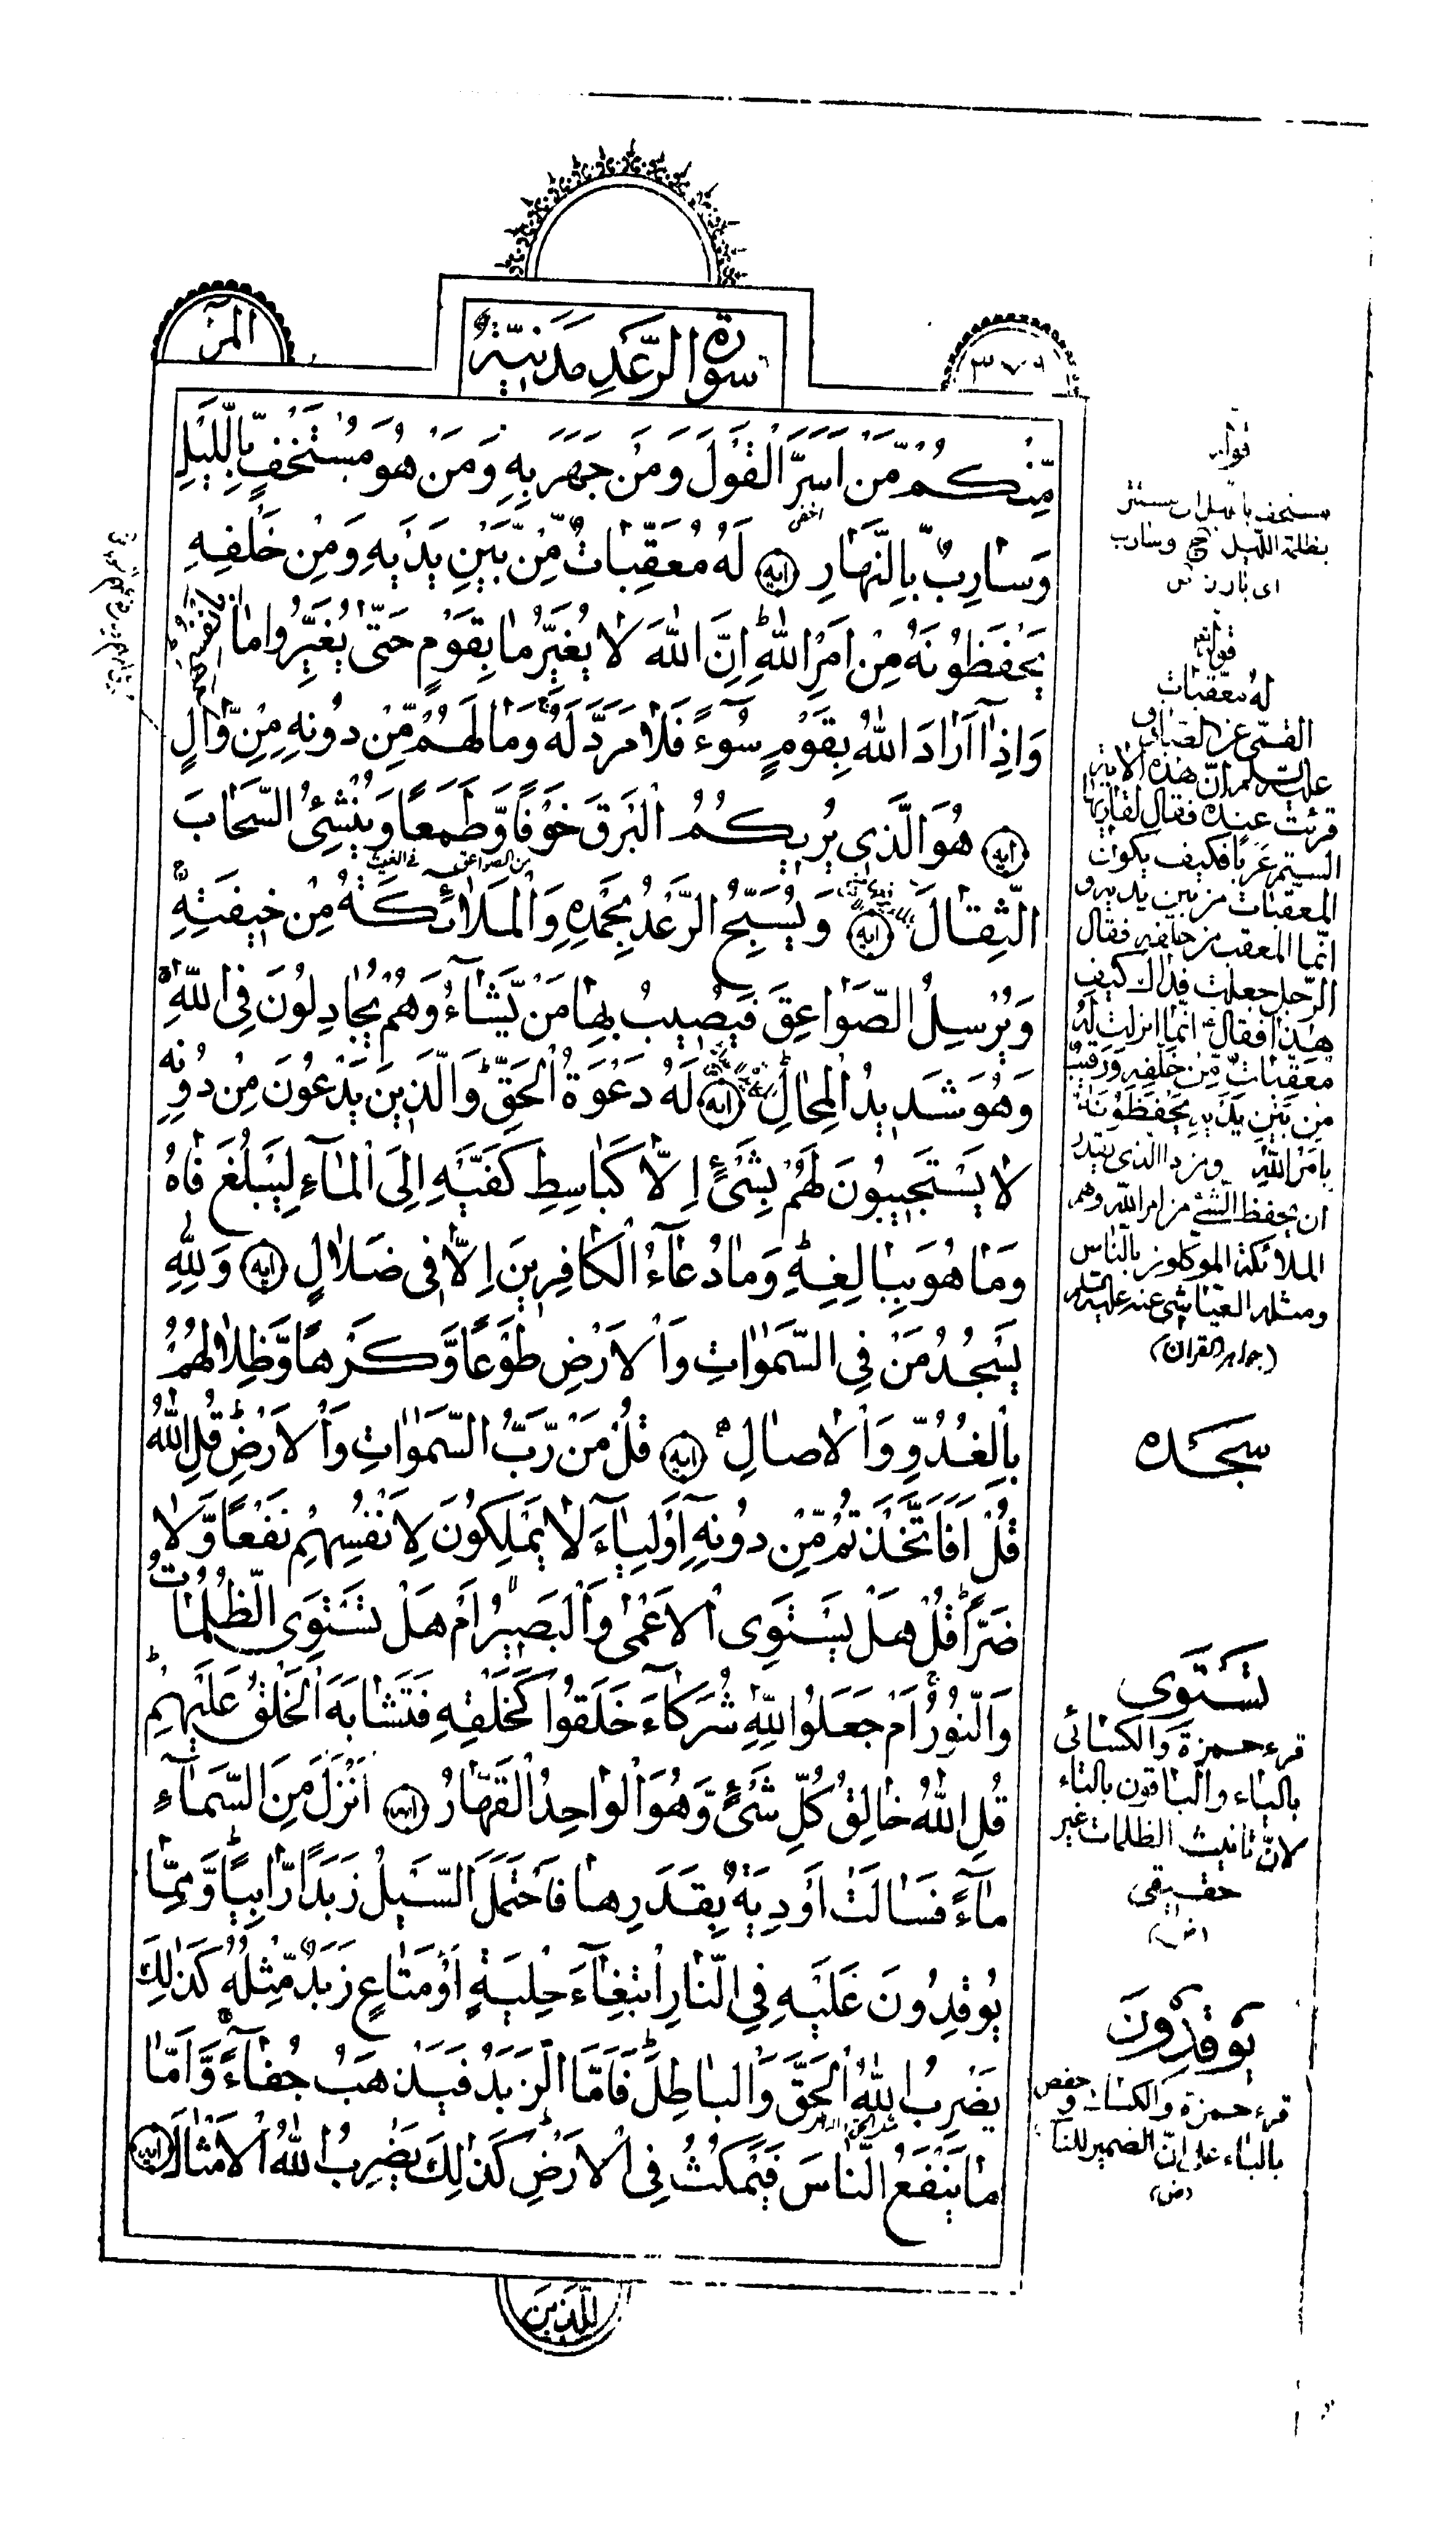 المر
سورة الرَّعَدِ مَدَنيّة
٣٧٦
مِّنكُمْ مَّنْ اَسَرَّ الْقَوْلَ وَمَنْ جَهَرَ بِهِ وَمَنْ هُوَ مُسْتَخْفٍ بِاللَّيْلِ
اخفى
وَسٰارِبٌ بِالنَّهٰارِ ایه لَهُ مُعَقِّبٰاتٌ مِّنْ بَيْنِ يَدَيْهِ وَمِنْ خَلْفِهِ
يَحْفَظُونَهُ مِنْ اَمْرِ اللهِ ط اِنَّ اللهَ لاٰ يُغَيِّرُ مٰا بِقَوْمٍ حَتّىٰ يُغَيِّرُوا مٰا بِاَنْفُسِهِمْ ط
وَاِذٰا اَرٰادَ اللهُ بِقَوْمٍ سُوٓءً فَلاٰ مَرَدَّ لَهُ ج وَمٰا لَهُمْ مِّنْ دُونِهِ مِنْ وّٰالٍ
ایه هُوَ الَّذِي يُرِيكُمُ الْبَرْقَ خَوْفًا وَّطَمَعًا وَيُنْشِئُ السَّحٰابَ
من الصواعق في الغيث
الثِّقٰالَ ایه وَيُسَبِّحُ الرَّعْدُ بِحَمْدِهِ وَالْمَلاٰئِكَةُ مِنْ خِيفَتِهِ
وَيُرْسِلُ الصَّوٰاعِقَ فَيُصِيبُ بِهٰا مَنْ يَّشٰآءُ وَهُمْ يُجٰادِلُونَ فِي اللهِ
وَهُوَ شَدِيدُ الْمِحٰالِ ط ایه لَهُ دَعْوَةُ الْحَقِّ ط وَالَّذِينَ يَدْعُونَ مِنْ دُونِهِ
لاٰ يَسْتَجِيبُونَ لَهُمْ بِشَيْءٍ اِلاّٰ كَبٰاسِطِ كَفَّيْهِ اِلَى الْمٰآءِ لِيَبْلُغَ فٰاهُ
وَمٰا هُوَ بِبٰالِغِهِ ط وَمٰا دُعٰآءُ الْكٰافِرِينَ اِلاّٰ فِي ضَلاٰلٍ ایه وَلِلّٰهِ
يَسْجُدُ مَنْ فِي السَّمٰوٰاتِ وَالْاَرْضِ طَوْعًا وَّكَرْهًا وَّظِلاٰلُهُمْ
بِالْغُدُوِّ وَالْاٰصٰالِ ایه قُلْ مَنْ رَّبُّ السَّمٰوٰاتِ وَالْاَرْضِ ط قُلِ اللهُ
قُلْ اَفَاتَّخَذْتُمْ مِّنْ دُونِهِ اَوْلِيٰآءَ لاٰ يَمْلِكُونَ لِاَنْفُسِهِمْ نَفْعًا وَّلاٰ
ضَرًّا ط قُلْ هَلْ يَسْتَوِى الْاَعْمٰى وَالْبَصِيرُ اَمْ هَلْ تَسْتَوِى الظُّلُمٰاتُ
وَالنُّورُ ج اَمْ جَعَلُوا لِلّٰهِ شُرَكٰآءَ خَلَقُوا كَخَلْقِهِ فَتَشٰابَهَ الْخَلْقُ عَلَيْهِمْ ط
قُلِ اللهُ خٰالِقُ كُلِّ شَيْءٍ وَّهُوَ الْوٰاحِدُ الْقَهّٰارُ ایه اَنْزَلَ مِنَ السَّمٰآءِ
مٰآءً فَسٰالَتْ اَوْدِيَةٌ بِقَدَرِهٰا فَاحْتَمَلَ السَّيْلُ زَبَدًا رّٰابِيًا ط وَّمِمّٰا
يُوقِدُونَ عَلَيْهِ فِي النّٰارِ ابْتِغٰآءَ حِلْيَةٍ اَوْ مَتٰاعٍ زَبَدٌ مِّثْلُهُ كَذٰلِكَ
يَضْرِبُ اللهُ الْحَقَّ وَالْبٰاطِلَ ط فَاَمَّا الزَّبَدُ فَيَذْهَبُ جُفٰآءً وَّاَمّٰا
مٰا يَنْفَعُ النّٰاسَ فَيَمْكُثُ فِى الْاَرْضِ ط كَذٰلِكَ يَضْرِبُ اللهُ الْاَمْثٰالَ ایه
لِلَّذِينَ
مستخف بالليل اى مستتر
بظلمة الليل وسارب
اى بارز
قوله
له معقبات
القمّى عن الصّادق
عليه السلم انّ هذه الاية
قرئت عنده فقال لقاريها
الستم عربا فكيف يكون
المعقبات من بين يديه و
انّما المعقب من خلفه فقال
الرّجل جعلت فداك كيف
هذا فقال انّما انزلت له
معقبات من خلفه ورقيب
من بين يديه يحفظونه
بامر الله ومن ذا الذى يقدر
ان يحفظ الشئ من امر الله وهم
الملائكة الموكلون بالنّاس
ومثله العيّاشي عنه عليه السلم
(جواهر القران)
سَجْدَه
تَسْتَوِى
قرء حمزة والكسائى
بالياء والباقون بالتاء
لانّ تانيث الظلمات غير
حقيقى
يُوقِدُونَ
قرء حمزة والكسائى وحفص
بالياء على انّ الضمير للناس
(ض)